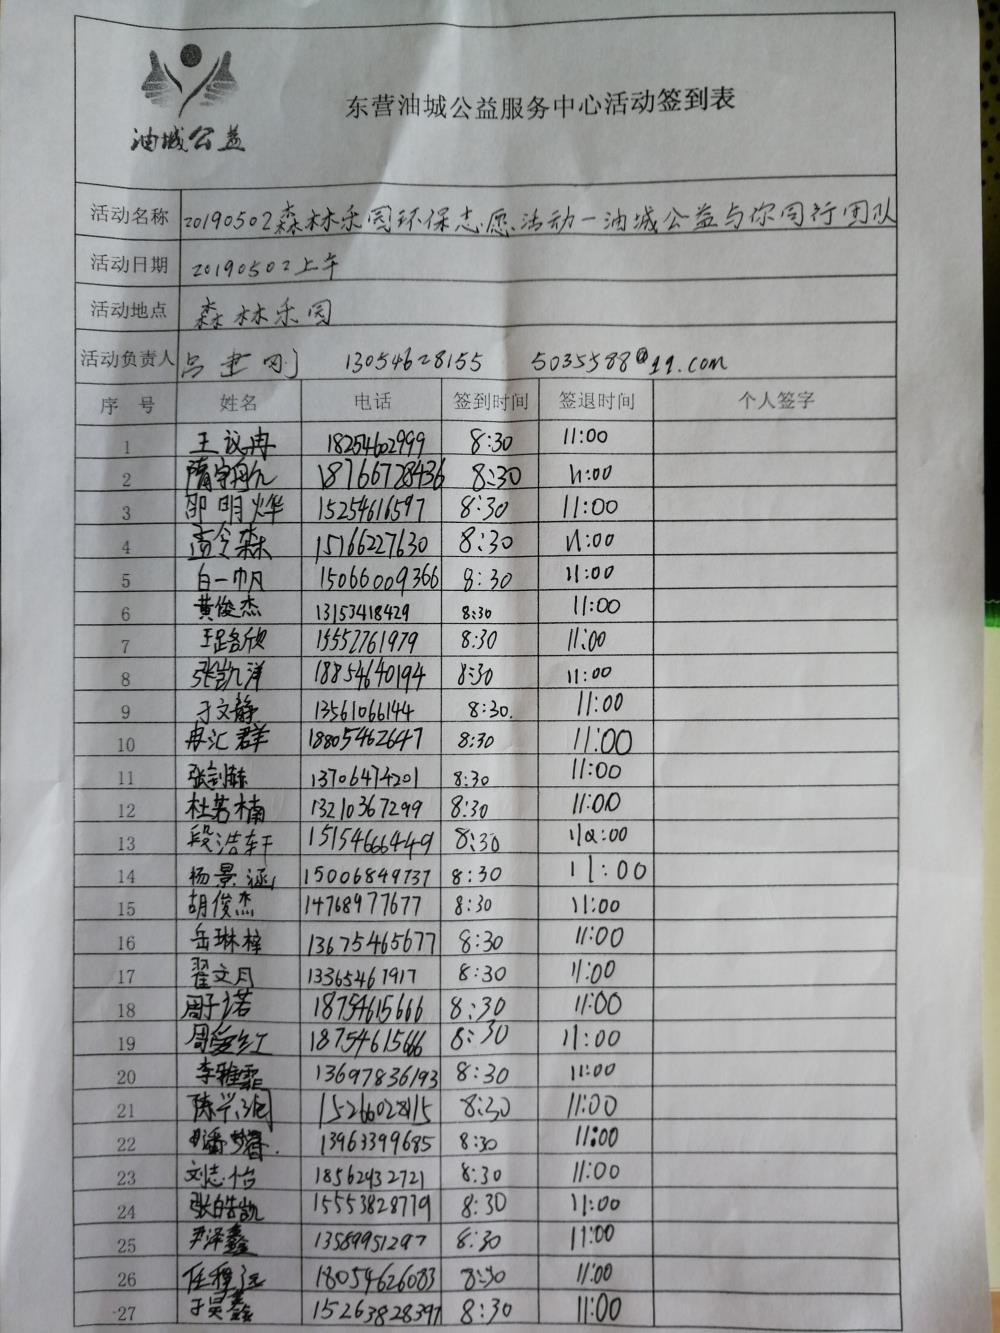 油城公益
东营油城公益服务中心活动签到表
活动名称 20190502森林乐园环保志愿活动—油城公益与你同行团队
活动日期 20190502上午
活动地点 森林乐园
活动负责人 吕 刚 13054628155 5035588@qq.com
序号 姓名 电话 签到时间 签退时间 个人签字
1 王议冉 18254602999 8:30 11:00
2 隋 18766728436 8:30 11:00
3 邵明烨 15254616597 8:30 11:00
4 孟令森 15766227630 8:30 11:00
5 白一帆 15066009366 8:30 11:00
6 黄俊杰 13153418429 8:30 11:00
7 王路欣 15552761979 8:30 11:00
8 张凯洋 18854640194 8:30 11:00
9 于文静 13561066144 8:30. 11:00
10 冉汇群 18805462647 8:30 11:00
11 张 13706474201 8:30 11:00
12 杜若楠 13210367299 8:30 11:00
13 段浩轩 15154666449 8:30 :00
14 杨景涵 15006849737 8:30 11:00
15 胡俊杰 14768977677 8:30 11:00
16 岳琳梓 13675465677 8:30 11:00
17 翟文月 13365467917 8:30 11:00
18 周子诺 18754615666 8:30 11:00
19 周爱红 18754615666 8:30 11:00
20 李雅霏 13697836193 8:30 11:00
21 陈兴润 15266028115 8:30 11:00
22 潘梦 13963399685 8:30 11:00
23 刘志怡 18562432721 8:30 11:00
24 张皓凯 15553828779 8:30 11:00
25 尹泽鑫 13589951297 8:30 11:00
26 任程远 18054626083 8:30 11:00
27 于昊鑫 15263828397 8:30 11:00